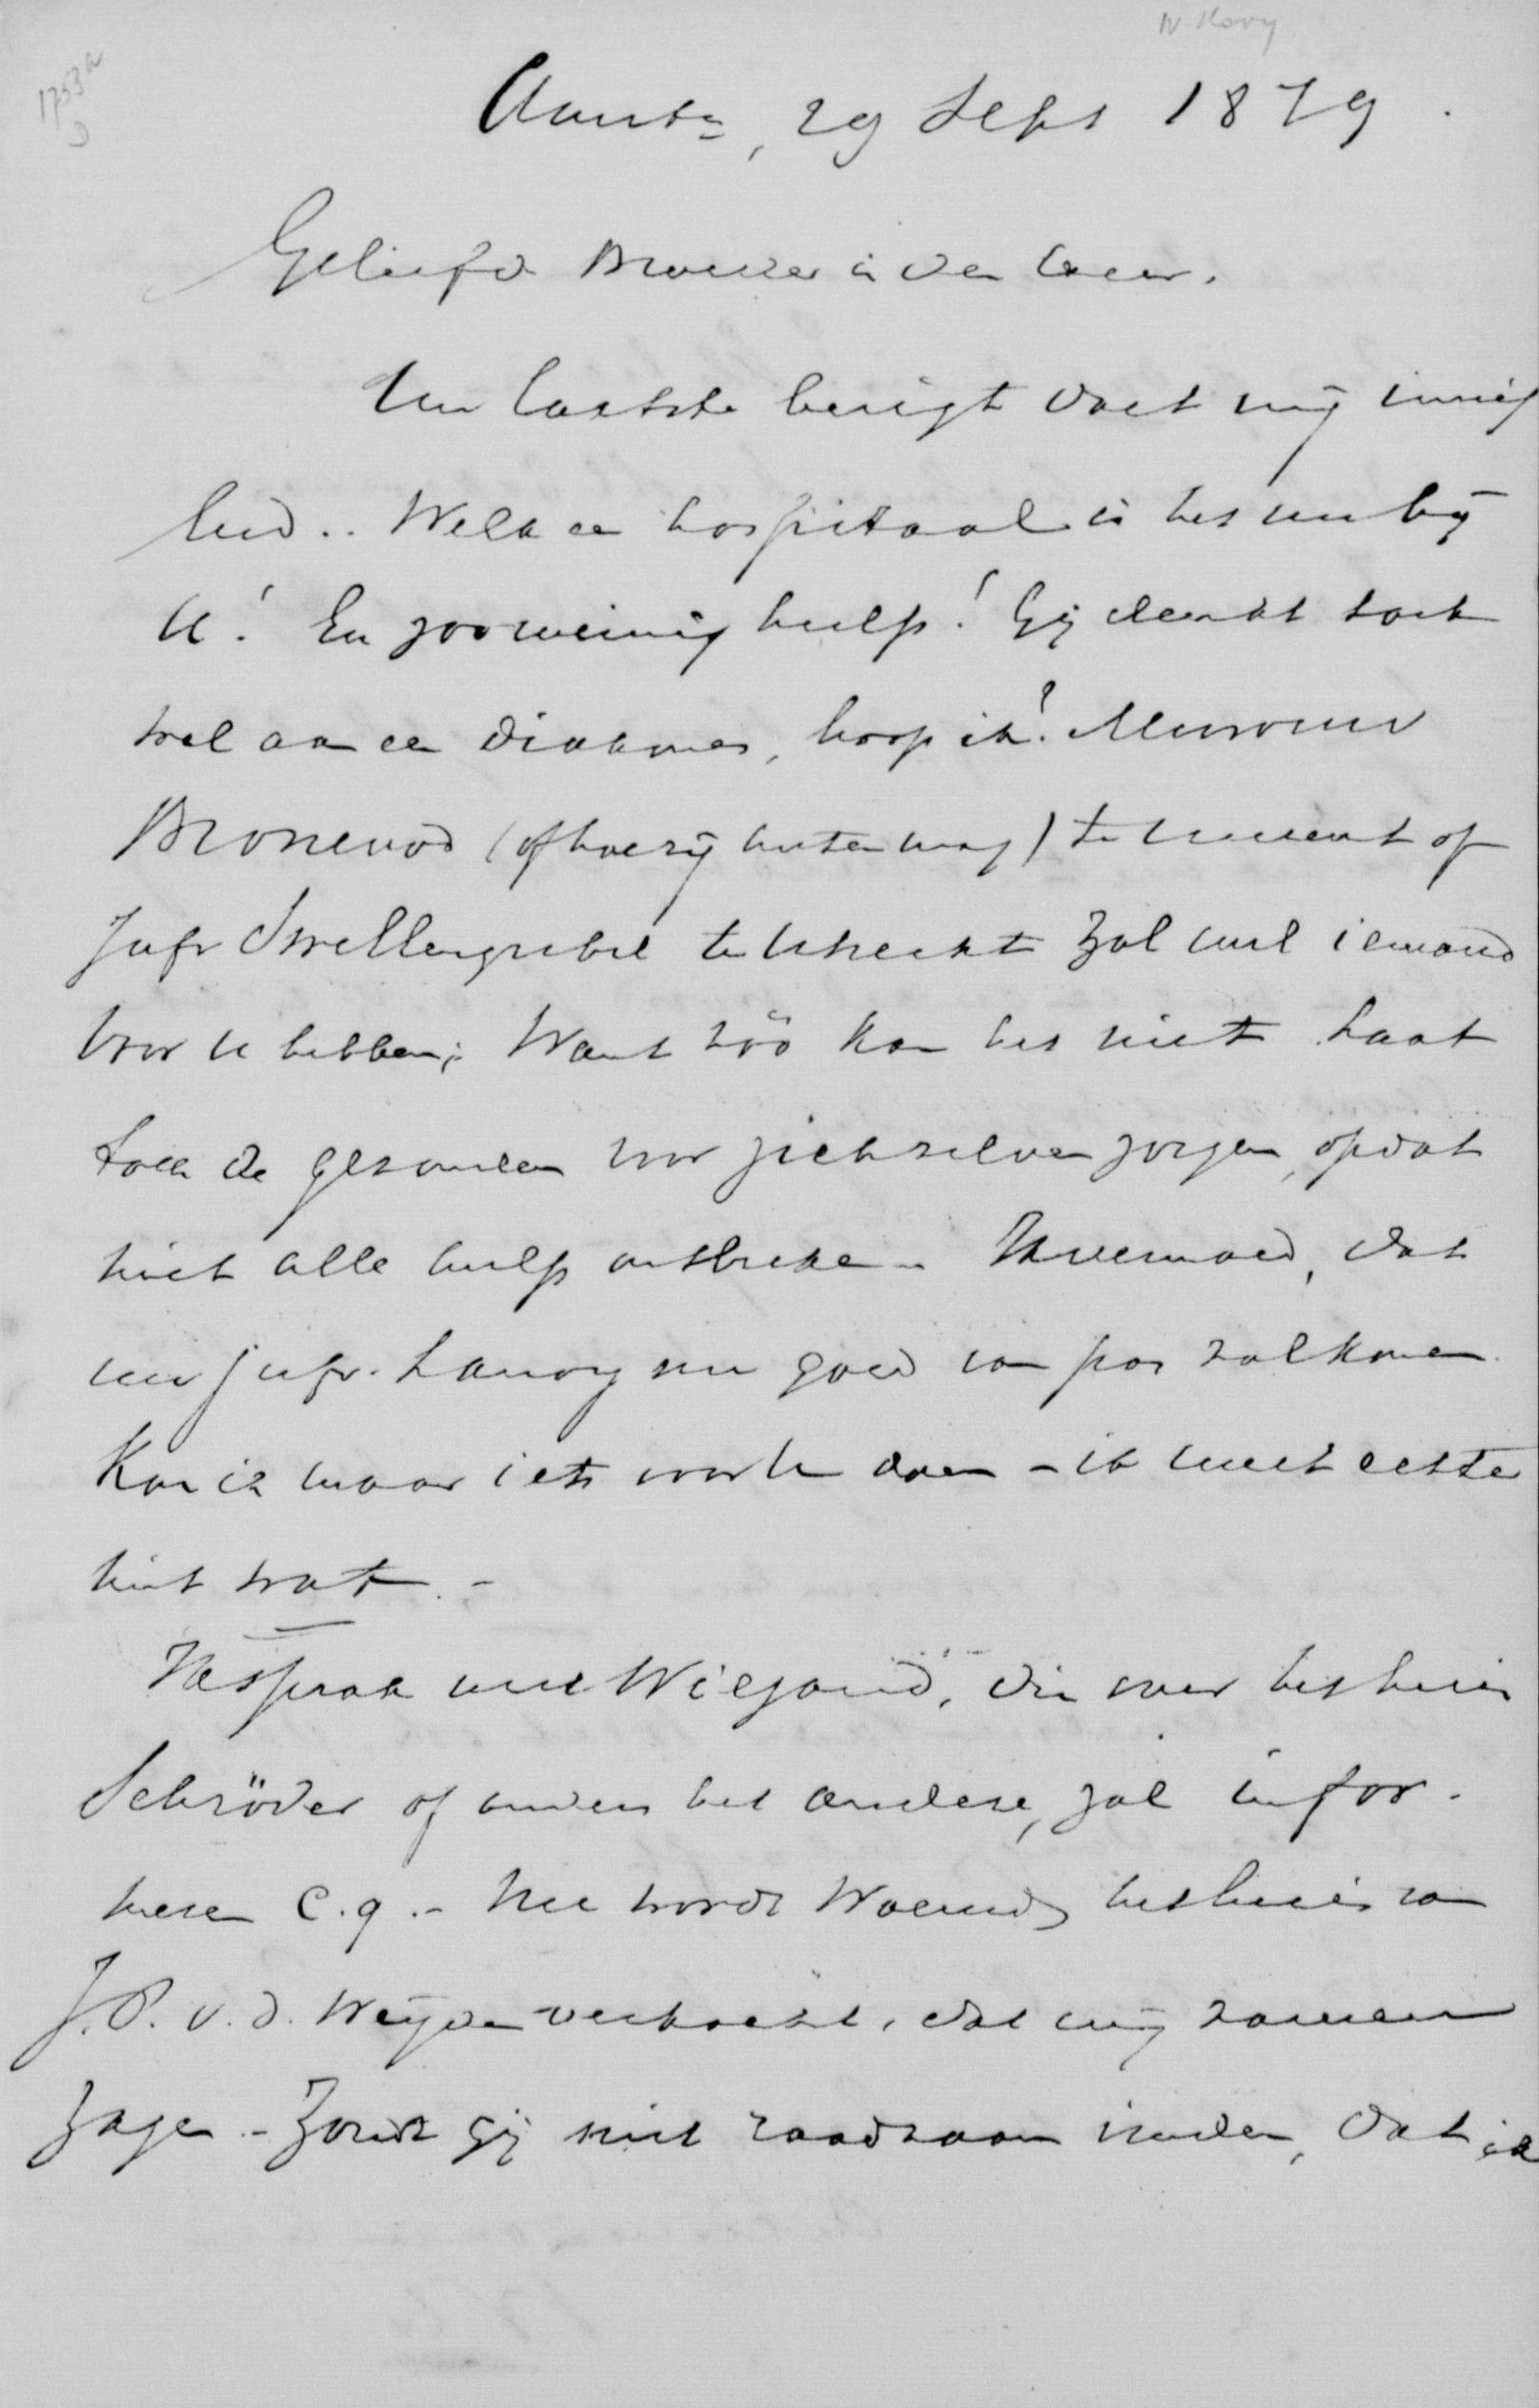 N. Hovy
1753a
Amst., 29 Sept 1879.
Geliefde Broeder in den Heer.
Uw laatste berigt doet mij innig
leed.. Welk een hospitaal is het nu bij
U! En zoo weinig hulp! Gij denkt toch
wel aan een diakones, hoop ik? Mevrouw
Bronevod (of hoe zij heeten mag) te of
Jufr Swellengrebel te Utrecht zal wel iemand
voor U hebben; Want zóó kan het niet. Laat
toch de gezonden voor zichzelven zorgen, opdat
niet alle hulp ontbreke. Ik vermoed, dat
uw jufr. Lanoy nu goed van pas zal komen.
Kon ik maar iets voor U doen - ik weet echter
niet wat. -
Ik sprak met Wiegand, die over het huis
Schröder of anders het andere, zal infor-
meren c.q. - Nu wordt Woensd het huis van
J.P. v.d. Weyde verkocht, dat wij samen
zagen. - Zoudt gij niet raadzaam vinden, dat ik